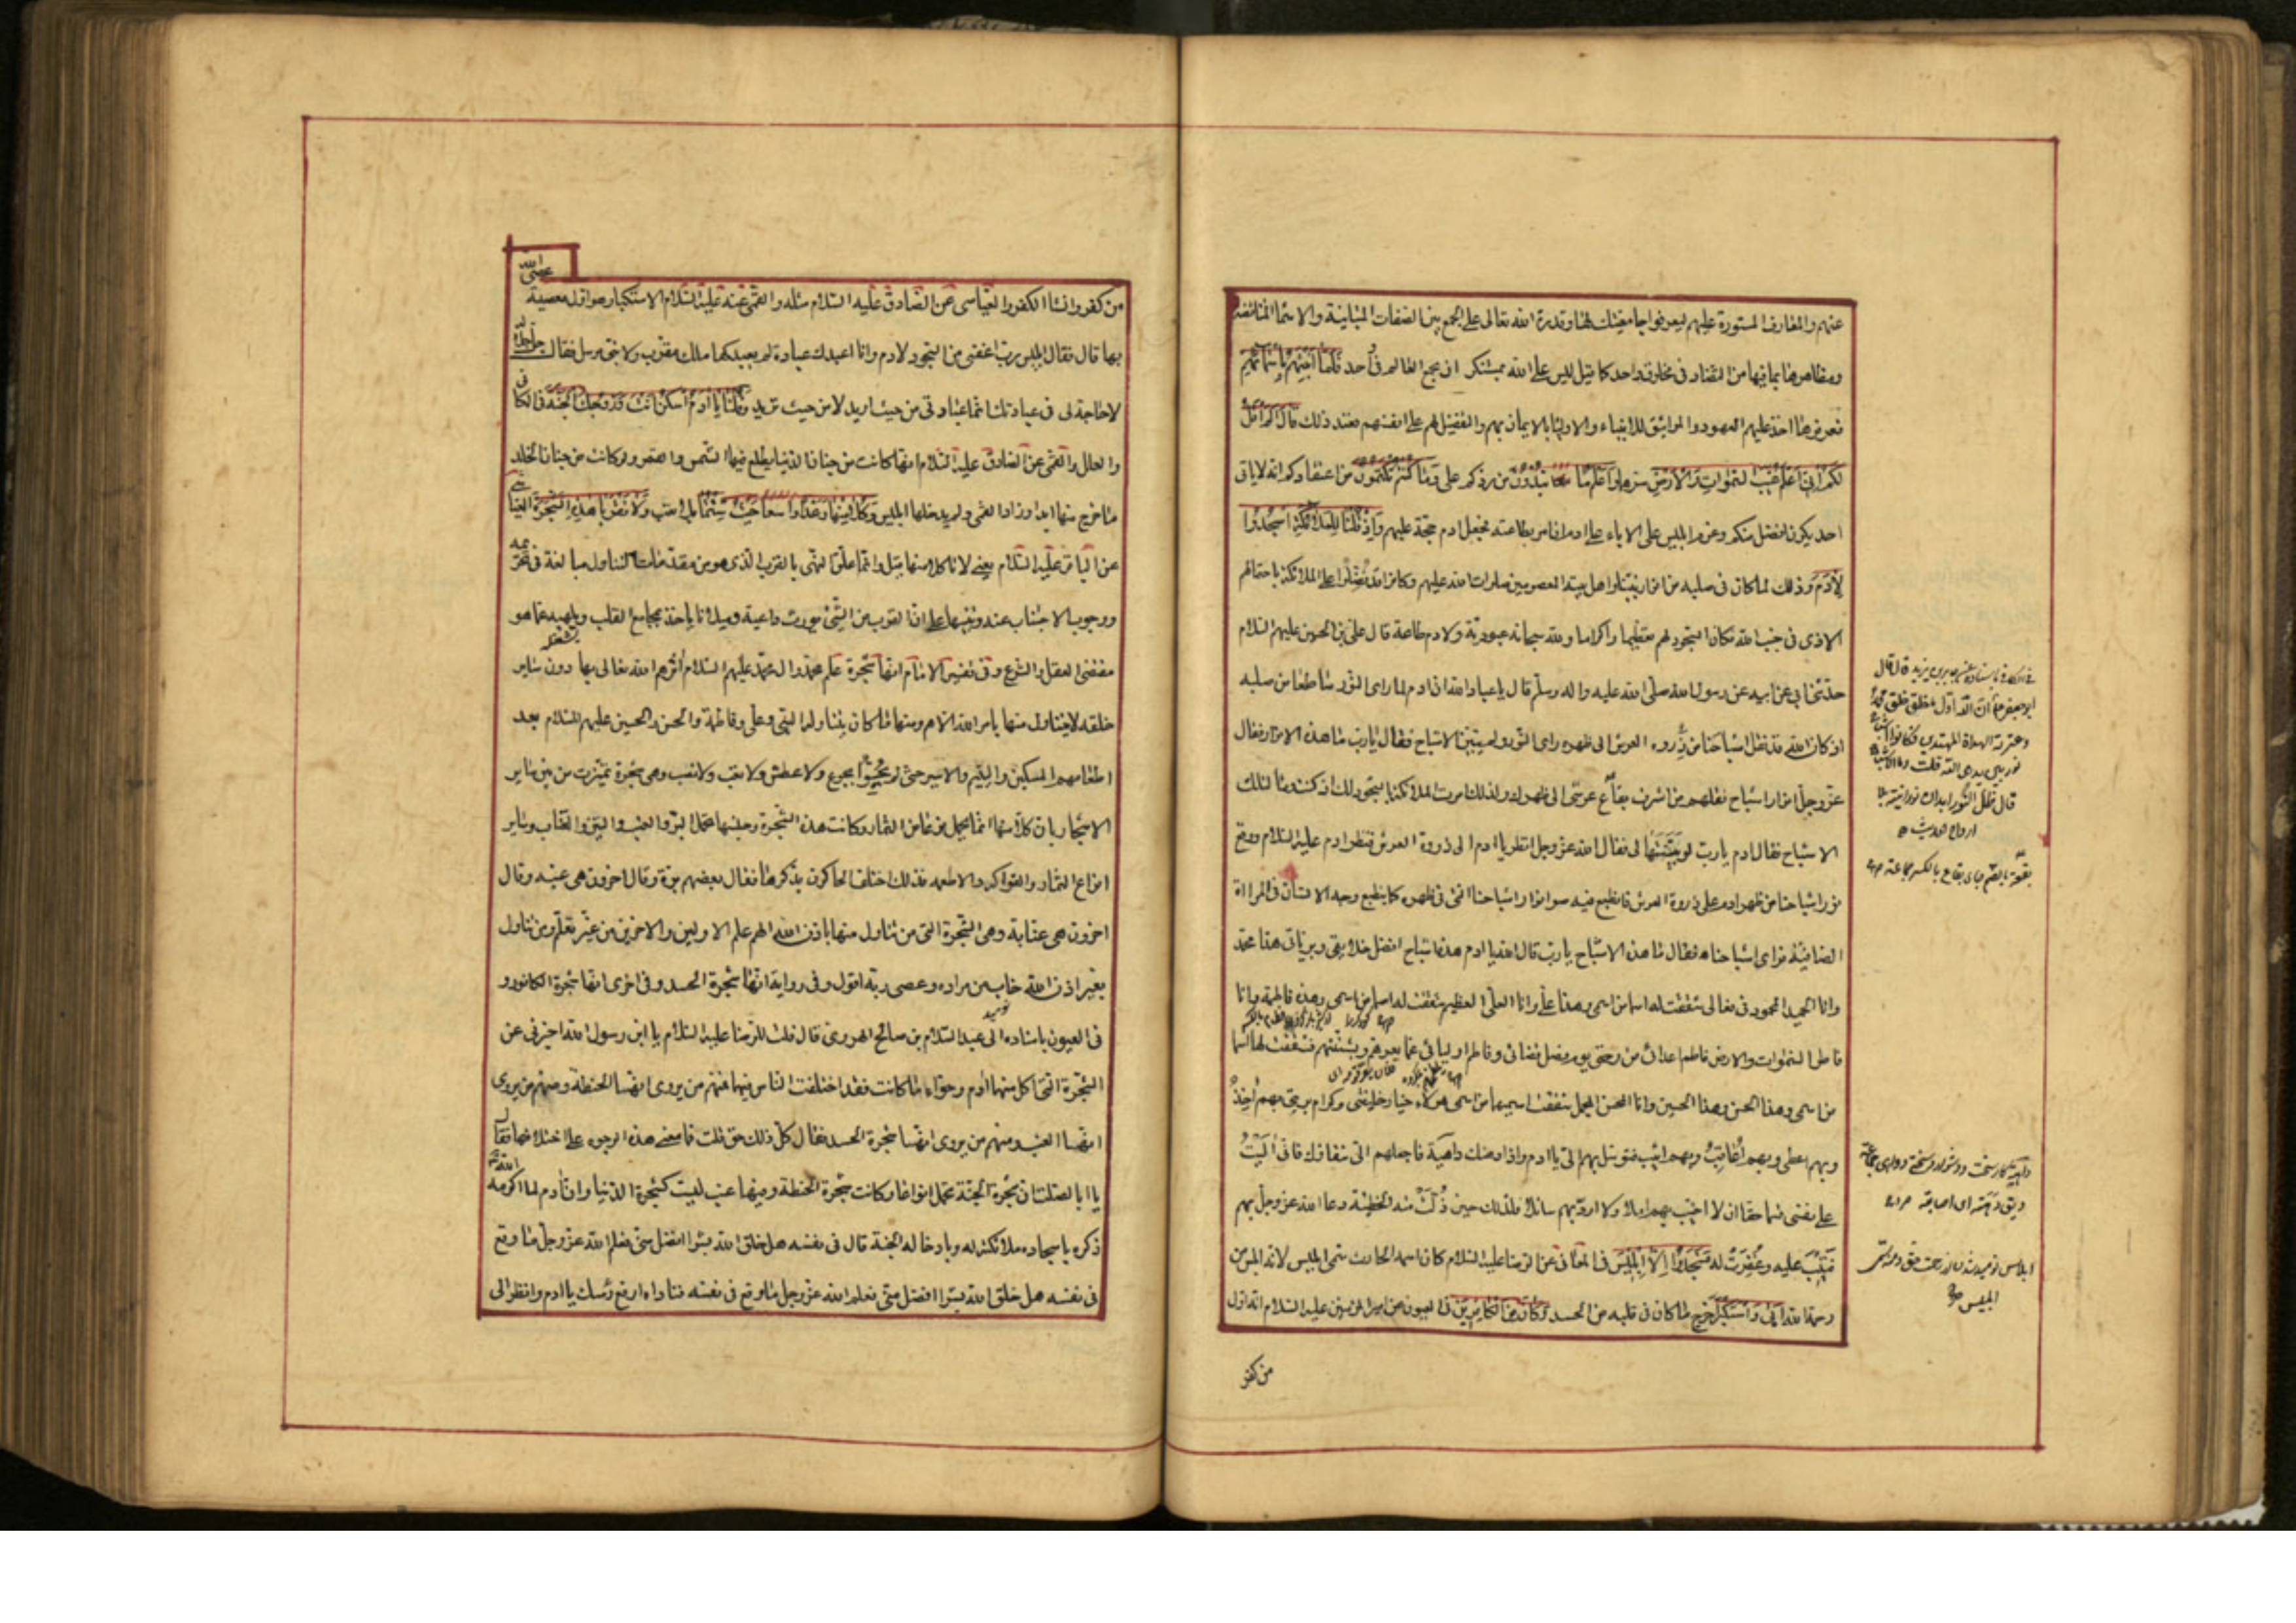 عنهم والمعارف المستورة عليهم ليعرفوا جامعيتك لها وقدرة الله تعالى على الجمع بين الصفات المتباينة والاسماء المتناقضة
ومظاهرها بما فيها من التضاد في مخلوق واحد كما قيل ليس على الله بمستنكر ان يجمع العالم في واحد فَلَمَّا أَنْبَأَهُمْ بِأَسْمَائِهِمْ
فعرفوها اخذ عليهم العهود والمواثيق للانبياء والاولياء بالايمان بهم والتفضيل لهم على انفسهم فعند ذلك قَالَ أَلَمْ أَقُلْ
لَكُمْ إِنِّي أَعْلَمُ غَيْبَ السَّمٰوَاتِ وَالْأَرْضِ سرهما وَأَعْلَمُ مَا تُبْدُونَ من ردكم علي وَمَا كُنْتُمْ تَكْتُمُونَ من اعتقادكم انه لا ياتي
احد يكون افضل منكم وعزم ابليس على الاباء على ادم ان امر بطاعته فجعل ادم حجة عليهم وَإِذْ قُلْنَا لِلْمَلٰئِكَةِ اسْجُدُوا
لِاٰدَمَ وذلك لما كان في صلبه من انوار نبينا واهل بيته المعصومين صلوات الله عليهم وكانوا قد فُضِّلُوا على الملائكة باحتمالهم
الاذى في جنب الله فكان السجود لهم تعظيما واكراما ولله سبحانه عبودية ولادم طاعة قال علي بن الحسين عليهم السلام
حدثني ابي عن ابيه عن رسول الله صلى الله عليه واله وسلم قال يا عباد الله ان ادم لما راى النور ساطعا من صلبه
اذ كان الله قد نقل اشباحنا من ذروة العرش الى ظهره راى النور ولم يتبين الاشباح فقال يا رب ما هذه الانوار فقال
عز وجل انوار اشباح نقلتهم من اشرف بقاع عرشي الى ظهرك ولذلك امرت الملائكة بالسجود لك اذ كنت وعاء لتلك
الاشباح فقال ادم يا رب لو بَيَّنْتَهَا لي فقال الله عز وجل انظر يا ادم الى ذروة العرش فنظر ادم عليه السلام ووقع
نور اشباحنا من ظهر ادم على ذروة العرش فانطبع فيه صور انوار اشباحنا التي في ظهره كما ينطبع وجه الانسان في المرآة
الصافية فراى اشباحنا فقال ما هذه الاشباح يا رب قال الله يا ادم هذه اشباح افضل خلائقي وبرياتي هذا محمد
وانا الحميد المحمود في فعالي شققت له اسما من اسمي وهذا علي وانا العلي العظيم شققت له اسما من اسمي وهذه فاطمة وانا
فاطر السموات والارض فاطم اعدائي من رحمتي يوم فصل قضائي وفاطم اوليائي عما يعرهم ويشينهم فشققت لها اسما
من اسمي وهذا الحسن وهذا الحسين وانا المحسن المجمل شققت اسميهما من اسمي هؤلاء خيار خليقتي وكرام بريتي بهم اٰخُذُ
وبهم اعطي وبهم اُعَاقِبُ وبهم اثيب فتوسل بهم الي يا ادم واذا دهتك داهية فاجعلهم الي شفعاءك فاني اٰلَيْتُ
على نفسي قسما حقا ان لا اخيب بهم املا ولا ارد بهم سائلا فلذلك حين زَلَّتْ منه الخطيئة دعا الله عز وجل بهم
فتيب عليه وغُفِرَتْ له فَسَجَدُوا إِلَّا إِبْلِيسَ في المعاني عن الرضا عليه السلام كان اسمه الحارث سمي ابليس لانه ابلس من
رحمة الله أَبَى وَاسْتَكْبَرَ اخرج ما كان في قلبه من الحسد وَكَانَ مِنَ الْكَافِرِينَ في العيون عن امير المؤمنين عليه السلام انه اول
من كفر
في الكافي باسناده عن جابر بن يزيد قال قال
ابو جعفر ع ان الله اول ما خلق خلق محمدا
وعترته الهداة المهتدين فكانوا اشباح
نور بين يدي الله قلت وما الاشباح
قال ظل النور ابدان نورانية بلا
ارواح الحديث
بقعة بالضم جاى بقاع بالكسر جماعته
ابلاس نوميد شدن از رحمت حق ومنه سمي
ابليس
من كفر وانشا الكفر والعياشي عن الصادق عليه السلام مثله والقمي عنه عليه السلام الاستكبار هو اول معصية
عصى الله
بها قال فقال ابليس رب اعفني من السجود لادم وانا اعبدك عبادة لم يعبدكها ملك مقرب ولا نبي مرسل فقال جل جلاله
لا حاجة لي في عبادتك انما عبادتي من حيث اريد لا من حيث تريد وَقُلْنَا يَا اٰدَمُ اسْكُنْ أَنْتَ وَزَوْجُكَ الْجَنَّةَ في الكافي
والعلل والقمي عن الصادق عليه السلام انها كانت من جنان الدنيا يطلع فيها الشمس والقمر ولو كانت من جنان الخلد
ما خرج منها ابدا وزاد القمي ولم يدخلها ابليس وَكُلَا مِنْهَا رَغَدًا واسعا حَيْثُ شِئْتُمَا بلا تعب وَلَا تَقْرَبَا هٰذِهِ الشَّجَرَةَ العياشي
عن الباقر عليه السلام يعني لا تاكلا منها قيل وانما علق النهي بالقرب الذي هو من مقدمات التناول مبالغة في تحريمه
ووجوب الاجتناب عنه وتنبيها على ان القرب من الشيء يورث داعية وميلا ناياخذ بمجامع القلب ويلهيه عما هو
مقتضى العقل والشرع وفي تفسير الامام انها شجرة علم محمد وال محمد عليهم السلام اثرهم الله تعالى بها دون ساير
خلقه لا يتناول منها بامر الله الا هم ومنها ما كان يتناوله النبي وعلي وفاطمة والحسن والحسين عليهم السلام بعد
اطعامهم المسكين واليتيم والاسير حتى لم يُحِسُّوا بجوع ولا عطش ولا تعب ولا نصب وهي شجرة تميزت من بين ساير
الاشجار بان كلا منها انما يحمل نوعا من الثمار وكانت هذه الشجرة وجنسها تحمل البر والعنب والتين والعناب وساير
انواع الثمار والفواكه والاطعمة فذلك اختلف الحاكون بذكرها فقال بعضهم برة وقال اخرون هي عنبة وقال
اخرون هي عنابة وهي الشجرة التي من تناول منها باذن الله الهم علم الاولين والاخرين من غير تعلم ومن تناول
بغير اذن الله خاب من مراده وعصى ربه اقول وفي رواية انها شجرة الحسد وفي اخرى انها شجرة الكافور و
في العيون باسناده الى عبد السلام بن صالح الهروي قال قلت للرضا عليه السلام يا ابن رسول الله اخبرني عن
الشجرة التي اكل منها ادم وحواء ما كانت فقد اختلفت الناس فيها فمنهم من يروي انها الحنطة ومنهم من يروي
انها العنب ومنهم من يروي انها شجرة الحسد فقال كل ذلك حق قلت فما معنى هذه الوجوه على اختلافها فقال
يا ابا الصلت ان شجرة الجنة تحمل انواعا وكانت شجرة الحنطة وفيها عنب ليست كشجرة الدنيا وان ادم لما اكرمه الله تعالى
ذكره باسجاده ملائكته له وبادخاله الجنة قال في نفسه هل خلق الله بشرا افضل مني فعلم الله عز وجل ما وقع
في نفسه هل خلق الله بشرا افضل مني فعلم الله عز وجل ما وقع في نفسه فناداه ارفع راسك يا ادم وانظر الى